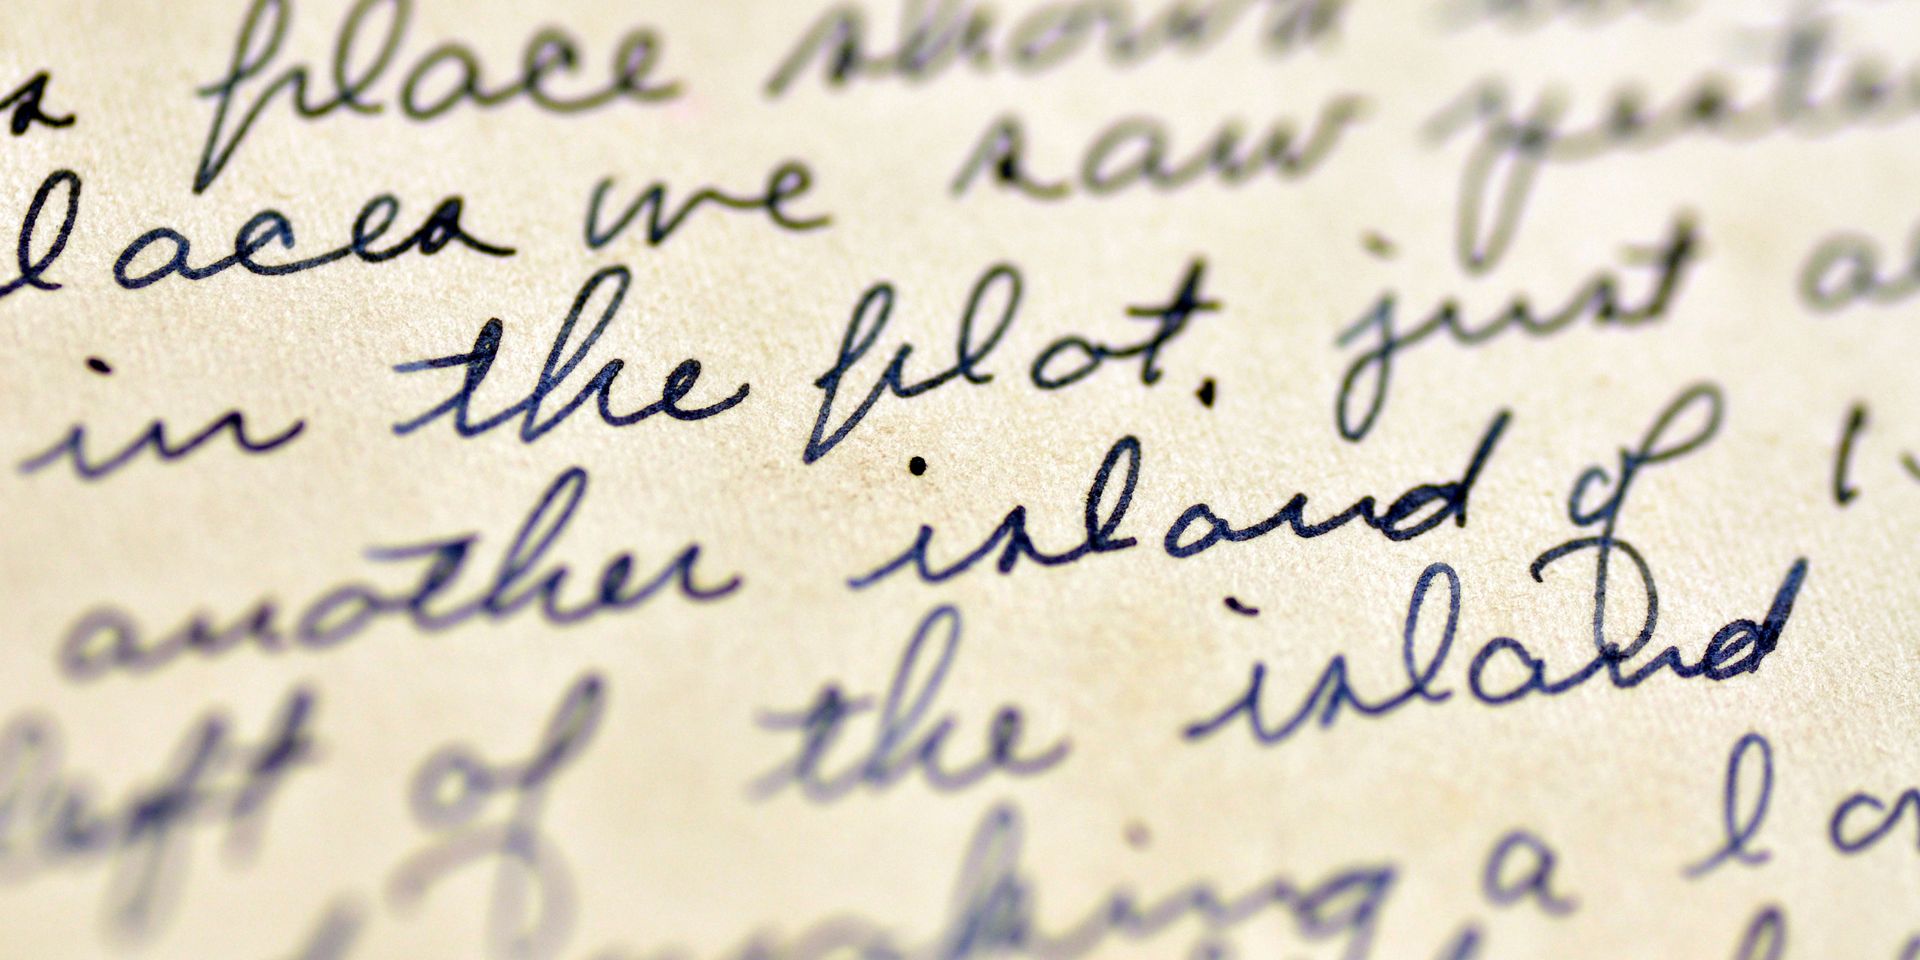 place shows
laces we saw yester
in the plot. just a
another island of
left of the island
making a lo